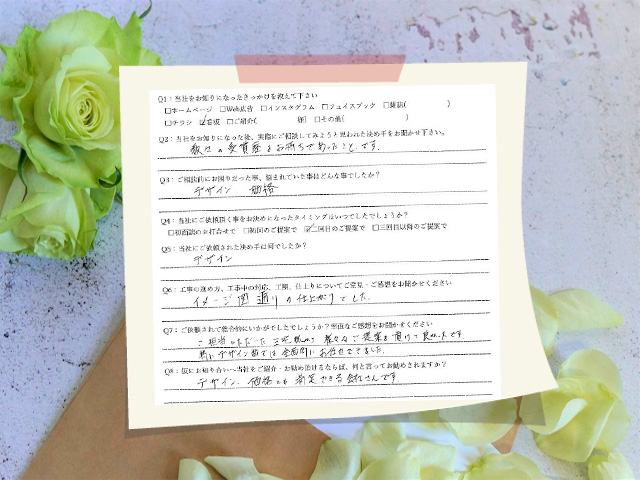 Q1：当社をお知りになったきっかけを教えて下さい
□ホームページ □Web広告 □インスタグラム □フェイスブック □雑誌(　　　　)
□チラシ ☑看板 □ご紹介(　　　　様) □その他(　　　　)
Q2：当社をお知りになった後、実際にご相談してみようと思われた決め手をお聞かせ下さい。
数々の受賞歴をお持ちであったこと.です.
Q3：ご相談前にお困りだった事、悩まれていた事はどんな事でしたか？
デザイン 価格
Q4：当社にご依頼頂く事をお決めになったタイミングはいつでしたでしょうか？
□初面談のお打合せで □初回のご提案で ☑二回目のご提案で □三回目以降のご提案で
Q5：当社にご依頼された決め手は何でしたか？
デザイン
Q6：工事の進め方、工事中の対応、工期、仕上りについてご意見・ご感想をお聞かせください
イメージ図通りの仕上がりでした.
Q7：ご依頼されて総合的にいかがでしたでしょうか？率直なご感想をお聞かせください
ご担当いただいた 様々なご提案を頂けて良かったです.
特にデザイン面では全面的にお任せできました.
Q8：仮にお知り合いへ当社をご紹介・お勧め頂けるならば、何と言ってお勧めされますか？
デザイン、価格とも満足できる会社さんです